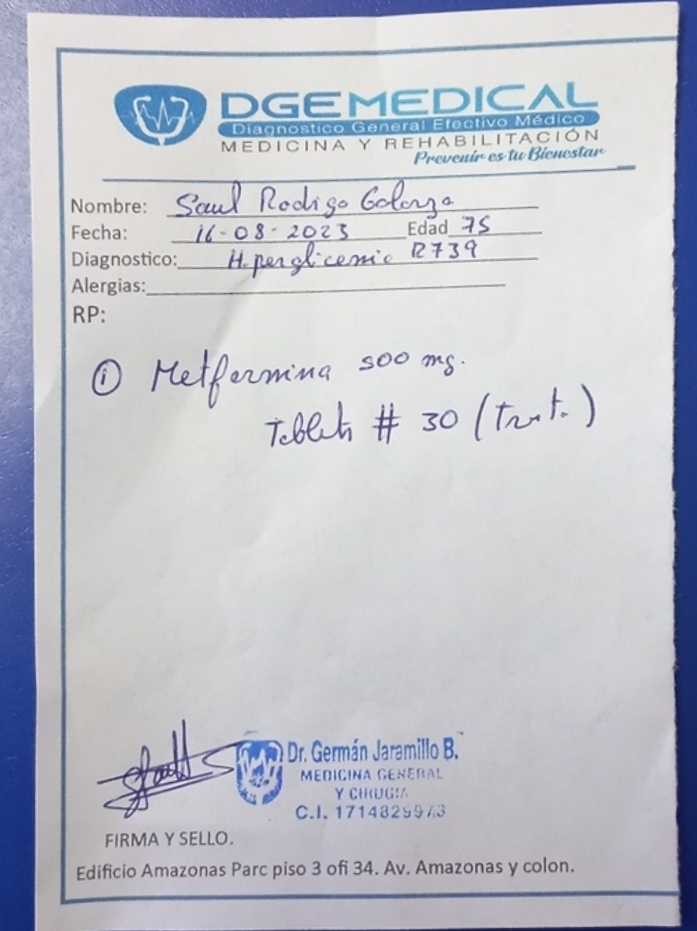 DGEMEDICAL
Diagnostico General Efectivo Médico
MEDICINA Y REHABILITACIÓN
Prevenir es tu Bienestar
Nombre: Saul Rodrigo
Fecha: 16-08-2023 Edad 75
Diagnostico: Hiperglicemia R739
Alergias:
RP:
① Metformina 500 mg.
Tablets # 30 (Trat.)
Dr. Germán Jaramillo B.
MEDICINA GENERAL
Y CIRUGIA
C.I. 1714829973
FIRMA Y SELLO.
Edificio Amazonas Parc piso 3 ofi 34. Av. Amazonas y colon.